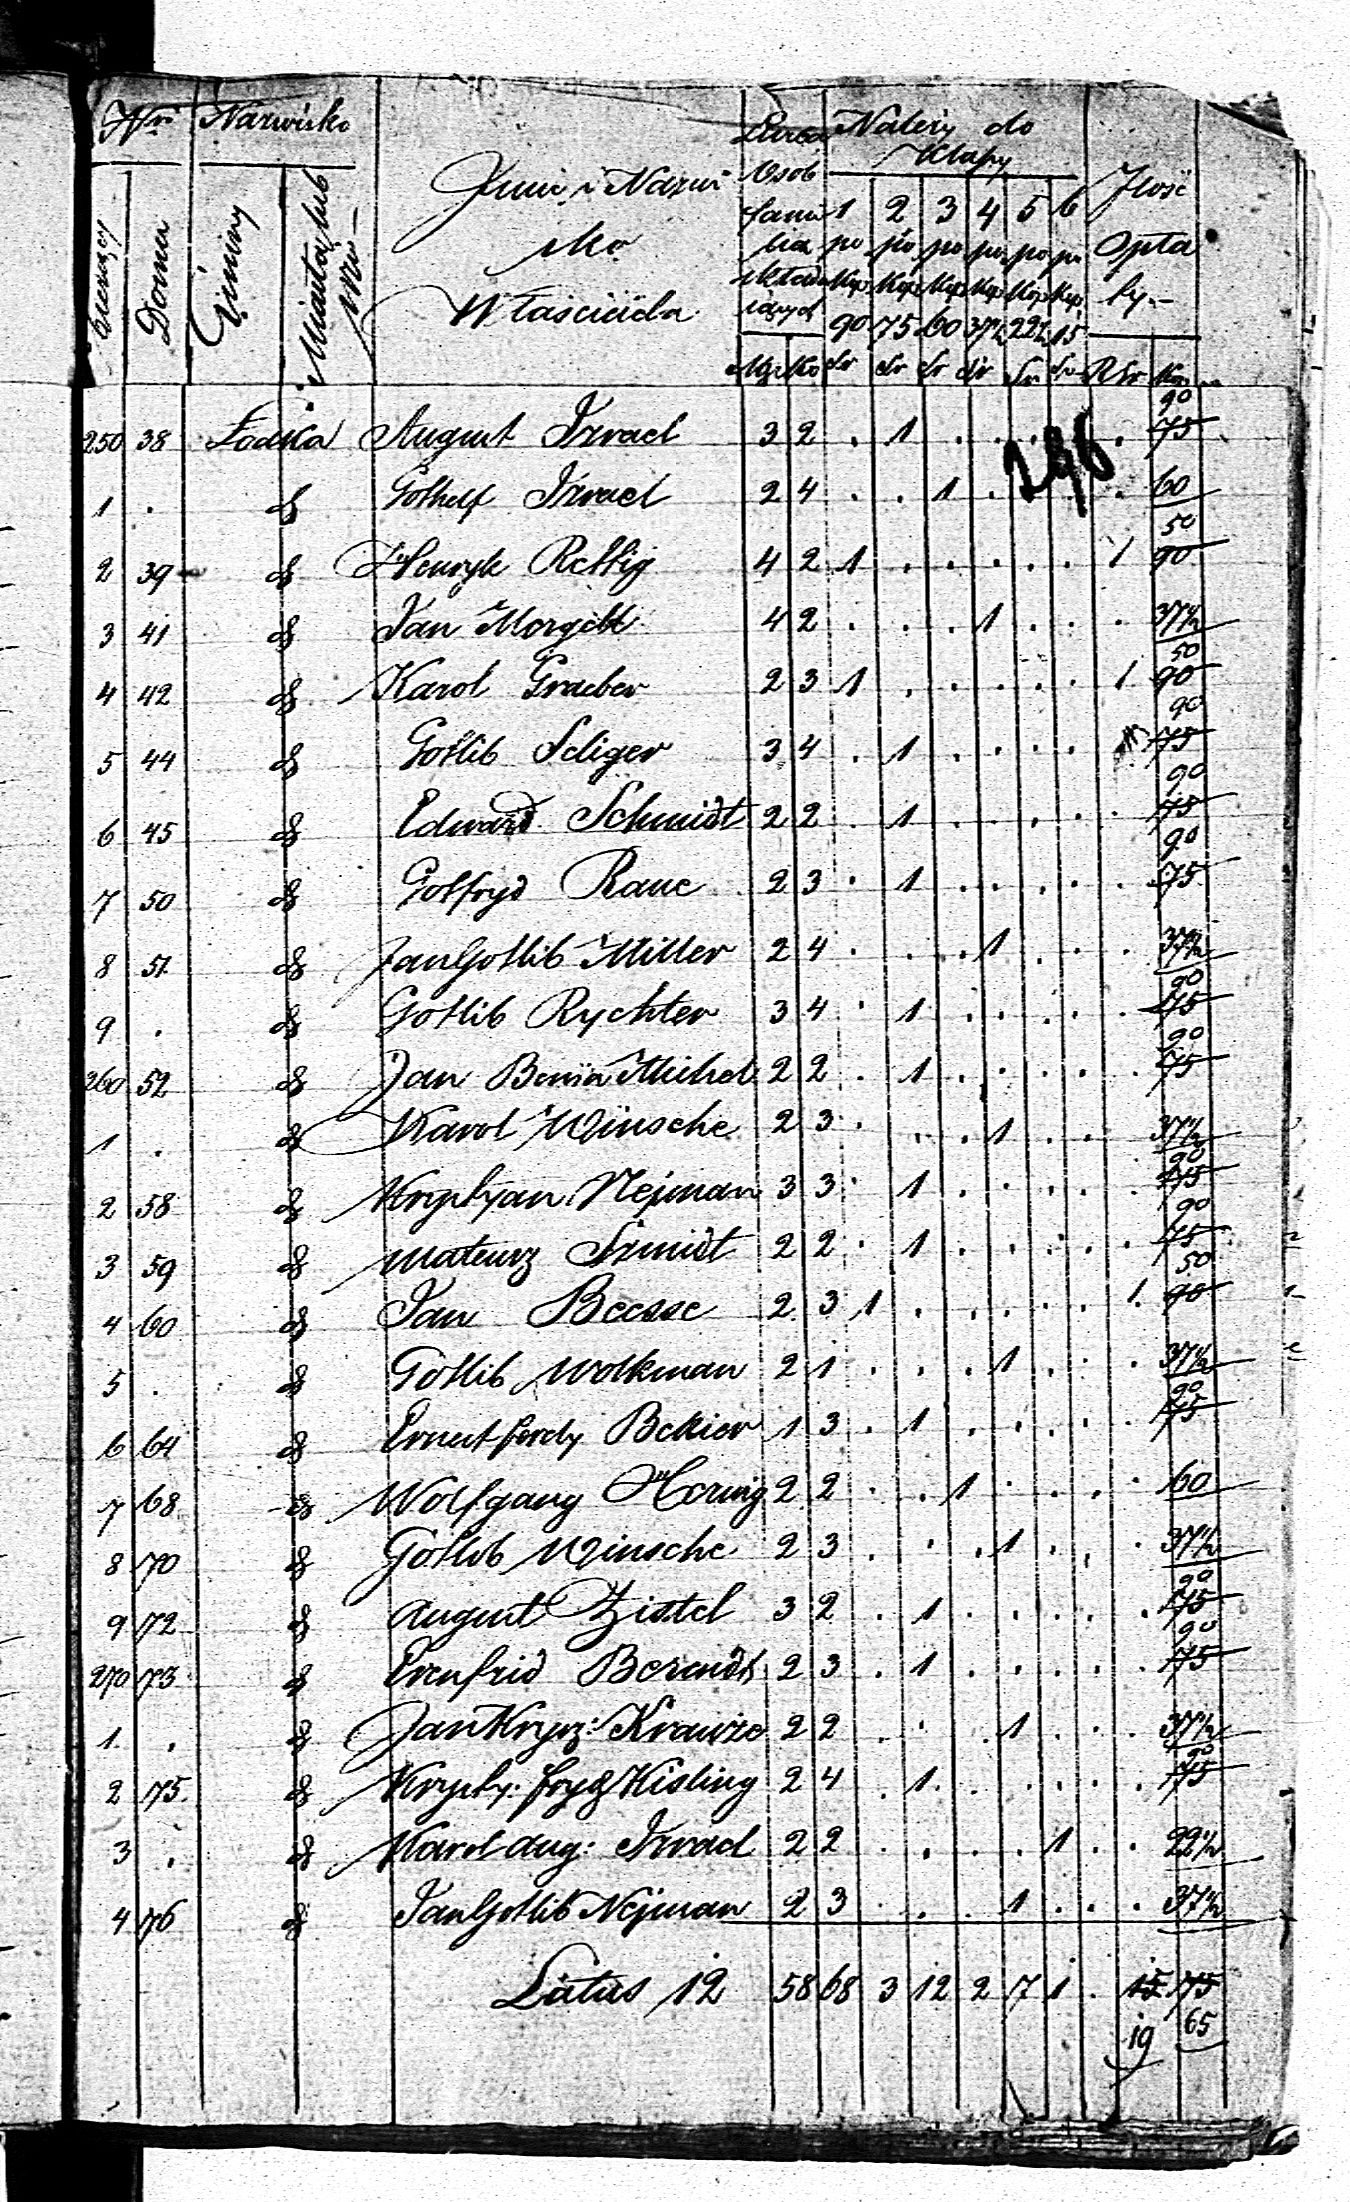 Nri Nazwisko Liczba Należy do
Klassy
Imie i Nazwi Osob Ilość
bieżący Domu Gminy Miasta lub Wsi fami 1 2 3 4 5 6
sko lia po po po po po po Opła
składa Kop Kop Kop Kop Kop Kop ty.
Właściciela iących 90 75 60 37½ 22½ 15
Mę Ko Sr Sr Sr Sr Sr Sr RSr Kop
90
250 38 Łodzka August Izrael 3 2 . 1 . . . . . 75
196
1 . d Gothelf Izrael 2 4 . . 1 . . . . 60
50
2 39 d Henryk Rettig 4 2 1 . . . . . 1 90
3 41 d Jan Morgett 4 2 . . . 1 . . . 37½
50
4 42 d Karol Graeber 2 3 1 . . . . . 1 90
90
5 44 d Gotlib Seliger 3 4 . 1 . . . . 75
90
6 45 d Edward Schmidt 2 2 1 . . . . . 75
90
7 50 d Gotfryd Raue 2 3 . 1 . . . . . 75
8 51 d Jan Gotlib Miller 2 4 . . . 1 . . . 37½
90
9 . d Gotlib Rychter 3 4 . 1 . . . . . 75
90
260 52 d Jan Benia Michel 2 2 . 1 . . . . . 75
1 . d Karol Winsche 2 3 . . . 1 . . 37½
90
2 58 d Kryst​yan Nejman 3 3 . 1 . . . . . 75
90
3 59 d Mateusz Szmidt 2 2 . 1 . . . . . 75
50
4 60 d Jan Beesse 2 3 1 . . . . . 1 90
5 . d Gotlib Wolkman 2 1 . . . 1 . . . 37½
90
6 64 d Ernest ferdy Bekier 1 3 . 1 . . . . . 75
7 68 d Wolfgang Hornig 2 2 . . 1 . . . . 60
8 70 d Gotlib Winsche 2 3 . . . 1 . . . 37½
90
9 72 d August Zistel 3 2 . 1 . . . . . 75
90
270 73 d Erenfrid Berendt 2 3 . 1 . . . . . 75
1 . d Jan Krysz: Krauze 2 2 . . . 1 . . . 37½
90
2 75 d Krysty: fryd Kisling 2 4 . 1 . . . . . 75
3 . d Karol Aug: Izrael 2 2 . . . . 1 . . 22½
4 76 d Jan Gotlib Nejman 2 3 . . . 1 . . . 37½
Latus 12 58 68 3 12 2 7 1 . 15 75
19 65